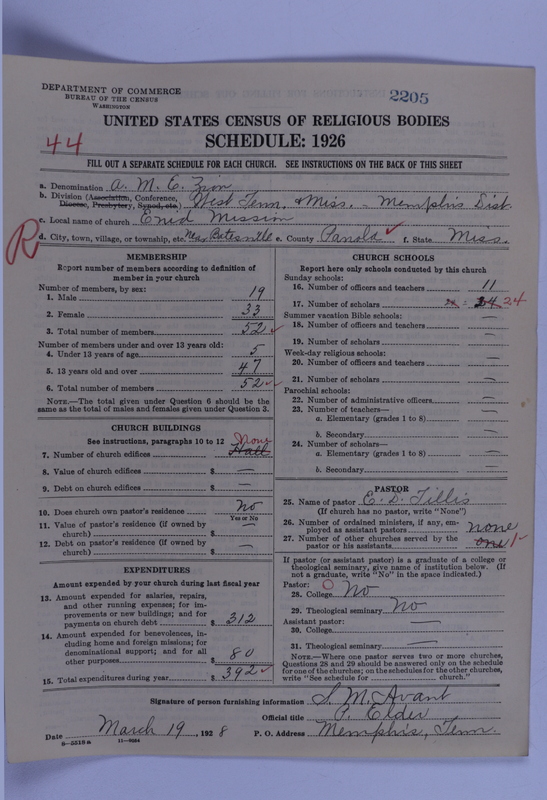 DEPARTMENT OF COMMERCE
BUREAU OF THE CENSUS
WASHINGTON
2205
UNITED STATES CENSUS OF RELIGIOUS BODIES
44
SCHEDULE: 1926
FILL OUT A SEPARATE SCHEDULE FOR EACH CHURCH. SEE INSTRUCTIONS ON THE BACK OF THIS SHEET
a. Denomination A. M. E. Zion
b. Division (Association, Conference, West Tenn. & Miss. - Memphis Dist.
Diocese, Presbytery, Synod, etc.)
c. Local name of church Enid Mission
R
d. City, town, village, or township, etc. Near Batesville e. County Panola f. State Miss.
MEMBERSHIP
Report number of members according to definition of
member in your church
Number of members, by sex:
1. Male 19
2. Female 33
3. Total number of members 52
Number of members under and over 13 years old:
4. Under 13 years of age 5
5. 13 years old and over 47
6. Total number of members 52
NOTE.—The total given under Question 6 should be the
same as the total of males and females given under Question 3.
CHURCH BUILDINGS
See instructions, paragraphs 10 to 12 None
7. Number of church edifices Hall
8. Value of church edifices $ —
9. Debt on church edifices $ —
10. Does church own pastor's residence No
Yes or No
11. Value of pastor's residence (if owned by
church) $ —
12. Debt on pastor's residence (if owned by
church) $ —
EXPENDITURES
Amount expended by your church during last fiscal year
13. Amount expended for salaries, repairs,
and other running expenses; for im-
provements or new buildings; and for
payments on church debt $ 312
14. Amount expended for benevolences, in-
cluding home and foreign missions; for
denominational support; and for all
other purposes $ 80
15. Total expenditures during year $ 392
CHURCH SCHOOLS
Report here only schools conducted by this church
Sunday schools:
16. Number of officers and teachers 11
17. Number of scholars 24 24
Summer vacation Bible schools:
18. Number of officers and teachers —
19. Number of scholars —
Week-day religious schools:
20. Number of officers and teachers —
21. Number of scholars —
Parochial schools:
22. Number of administrative officers —
23. Number of teachers—
a. Elementary (grades 1 to 8) —
b. Secondary —
24. Number of scholars—
a. Elementary (grades 1 to 8) —
b. Secondary —
PASTOR
25. Name of pastor E. D. Tillis
(If church has no pastor, write "None")
26. Number of ordained ministers, if any, em-
ployed as assistant pastors none
27. Number of other churches served by the
pastor or his assistants one 1
If pastor (or assistant pastor) is a graduate of a college or
theological seminary, give name of institution below. (If
not a graduate, write "No" in the space indicated.)
Pastor:
28. College No
29. Theological seminary No
Assistant pastor:
30. College —
31. Theological seminary —
NOTE.—Where one pastor serves two or more churches,
Questions 28 and 29 should be answered only on the schedule
for one of the churches; on the schedules for the other churches,
write "See schedule for church."
Signature of person furnishing information S. M. Avant
Official title P. Elder
Date March 19, 1928 P. O. Address Memphis, Tenn.
8-5518a 11-9084